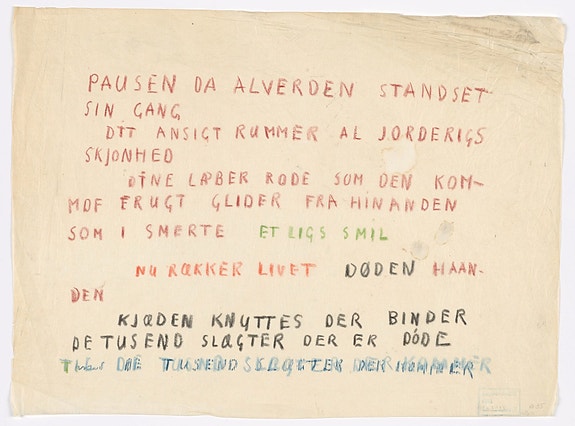 PAUSEN DA ALVERDEN STANDSET
SIN GANG
DIT ANSIGT RUMMER AL JORDERIGS
SKJØNHED
DINE LÆBER RØDE SOM DEN KOM-
MDE FRUGT GLIDER FRA HINANDEN
SOM I SMERTE ET LIGS SMIL
NU RÆKKER LIVET DØDEN HAAN-
DEN
KJÆDEN KNYTTES DER BINDER
DE TUSEND SLÆGTER DER ER DØDE
TIL DE TUSEND SLÆGTER DER KOMMER